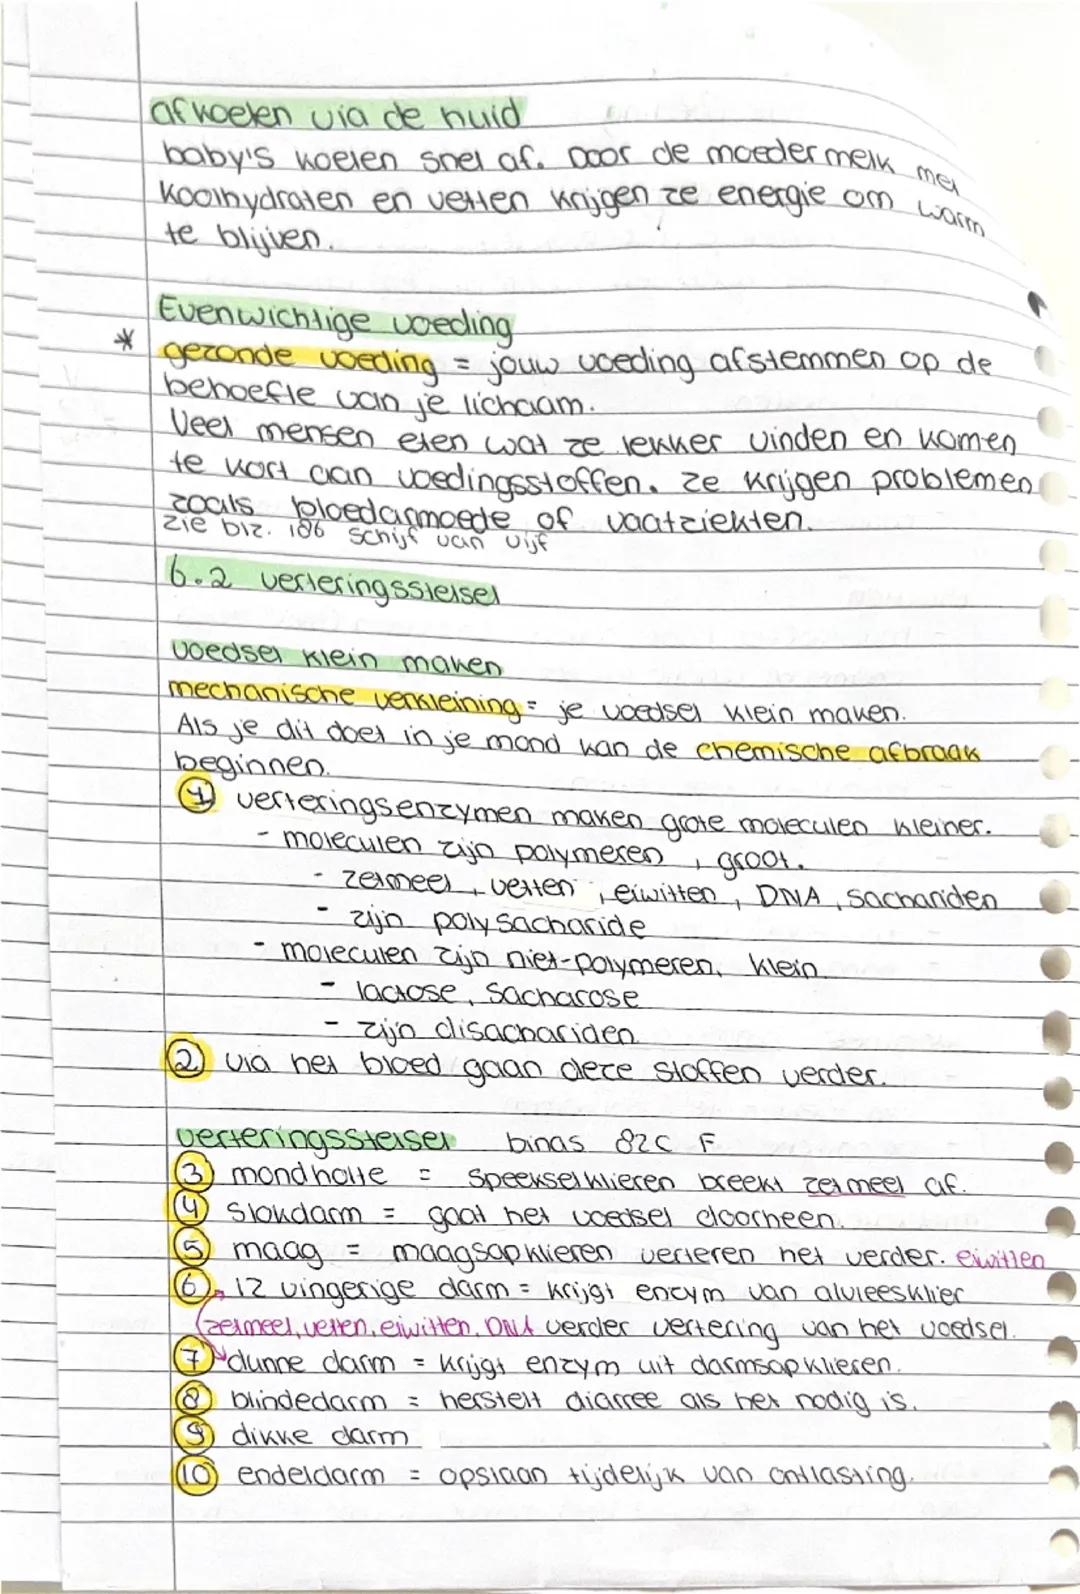 afkoelen via de huid
baby's koelen snel af. Door de moedermelk met
koolhydraten en vetten krijgen ze energie om warm
te blijven.
Evenwichtige voeding
* gezonde voeding = jouw voeding afstemmen op de
behoefte van je lichaam.
Veel mensen eten wat ze lekker vinden en komen
te kort aan voedingsstoffen. ze krijgen problemen
zoals bloedarmoede of vaatziekten.
zie blz. 186 schijf van vijf
6.2 verteringsstelsel
voedsel klein maken
mechanische verkleining = je voedsel klein maken.
Als je dit doet in je mond kan de chemische afbraak
beginnen.
1 verteringsenzymen maken grote moleculen kleiner.
- moleculen zijn polymeren, groot.
- zetmeel, vetten, eiwitten, DNA, sachariden
- zijn polysacharide
- moleculen zijn niet-polymeren, klein.
- lactose, sacharose
- zijn disachariden.
2 via het bloed gaan deze stoffen verder.
verteringsstelsel binas 82C F
3 mondholte = speekselklieren breekt zetmeel af.
4 slokdarm = gaat het voedsel doorheen.
5 maag = maagsapklieren verteren het verder. eiwitten
6 12 vingerige darm = krijgt enzym van alvleesklier
(zetmeel, vetten, eiwitten, DNA verder vertering van het voedsel.
7 dunne darm = krijgt enzym uit darmsapklieren.
8 blindedarm = herstelt diarree als het nodig is.
9 dikke darm
10 endeldarm = opslaan tijdelijk van ontlasting.